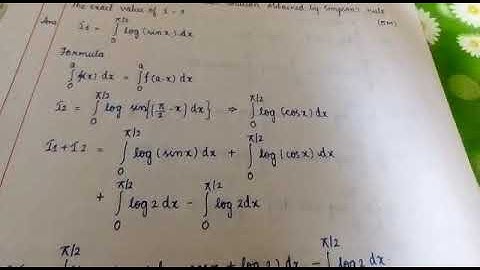 The exact value of I = ? solution obtained by Simpson's rule
(5M)
Ans I₁ = ∫₀^{π/2} log (sinx) dx
Formula
∫₀^a f(x) dx = ∫₀^a f(a-x) dx
I₂ = ∫₀^{π/2} log sin{(π/2 - x) dx} ⇒ ∫₀^{π/2} log (cosx) dx
I₁ + I₂ = ∫₀^{π/2} log (sinx) dx + ∫₀^{π/2} log (cosx) dx
+ ∫₀^{π/2} log 2 dx - ∫₀^{π/2} log 2dx
π/2 cosx + log 2) dx - ∫^{π/2} log 2 dx